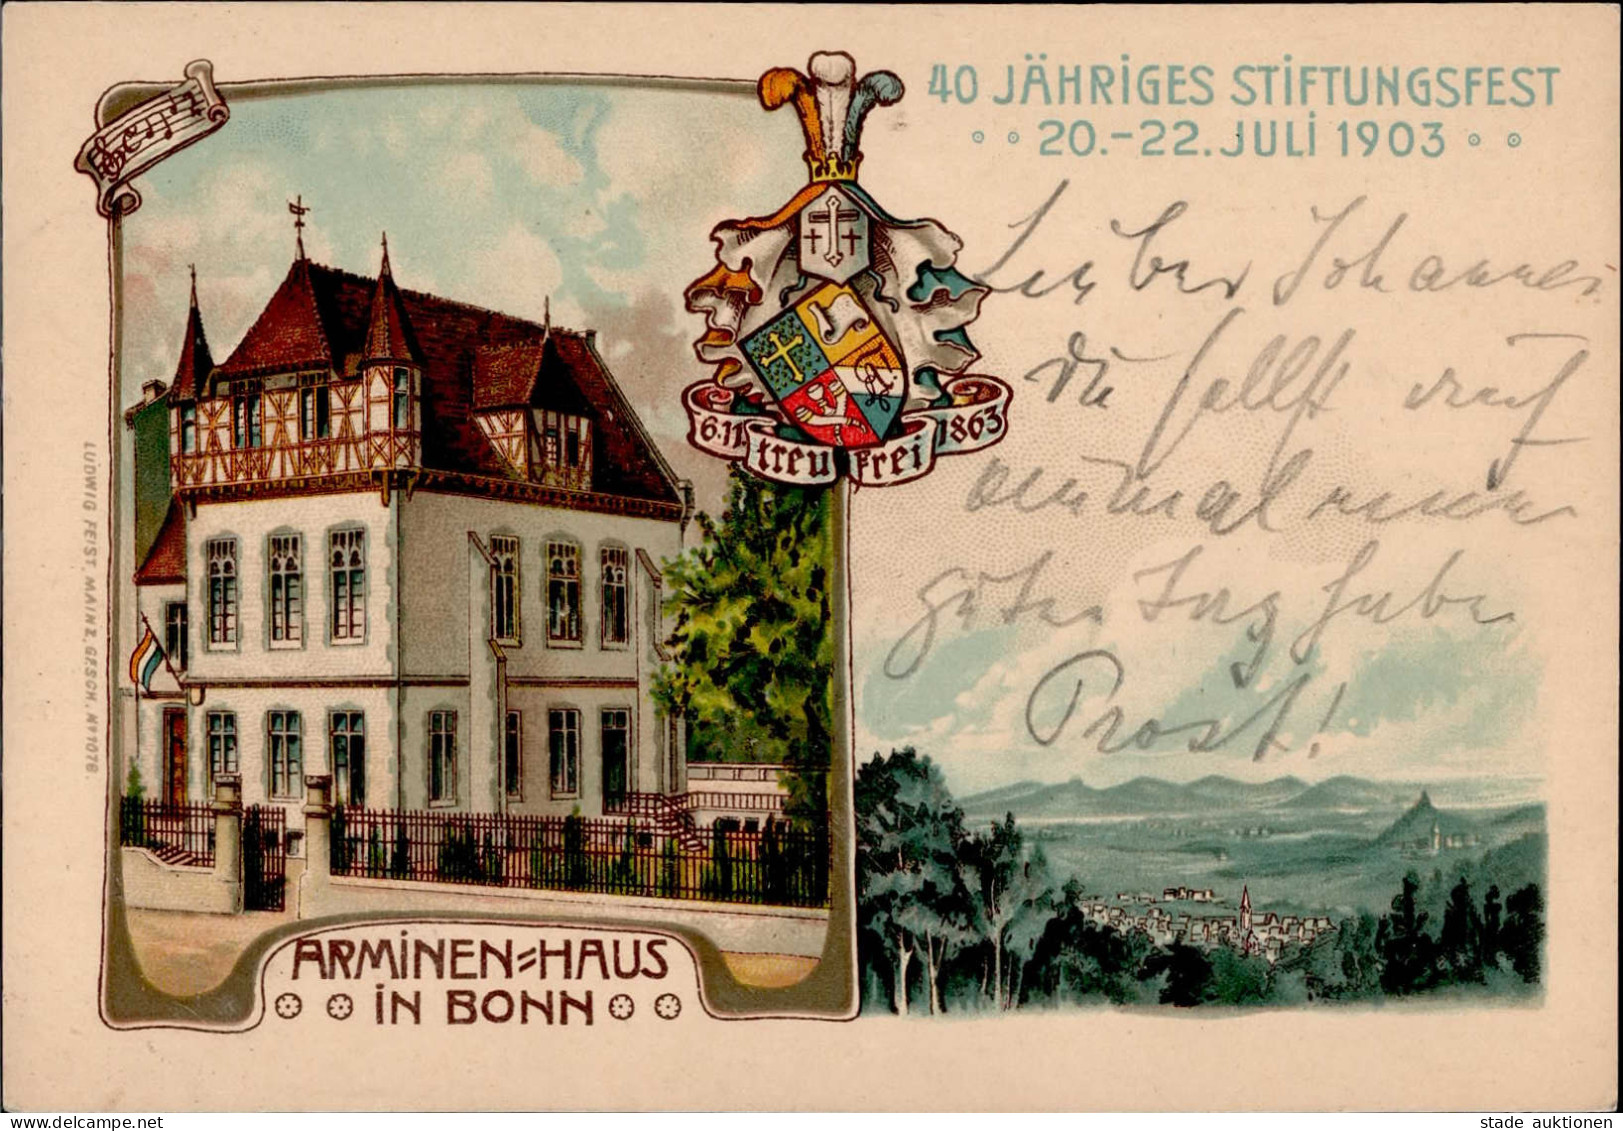 40 JÄHRIGES STIFTUNGSFEST
20.-22. JULI 1903
Lieber Johannes
du sollst auch
einmal einen
guten Tag haben
Prost!
6.11. treu frei 1863
LUDWIG FEIST, MAINZ, GESCH. Nº 1076.
ARMINEN=HAUS
IN BONN
stade auktionen